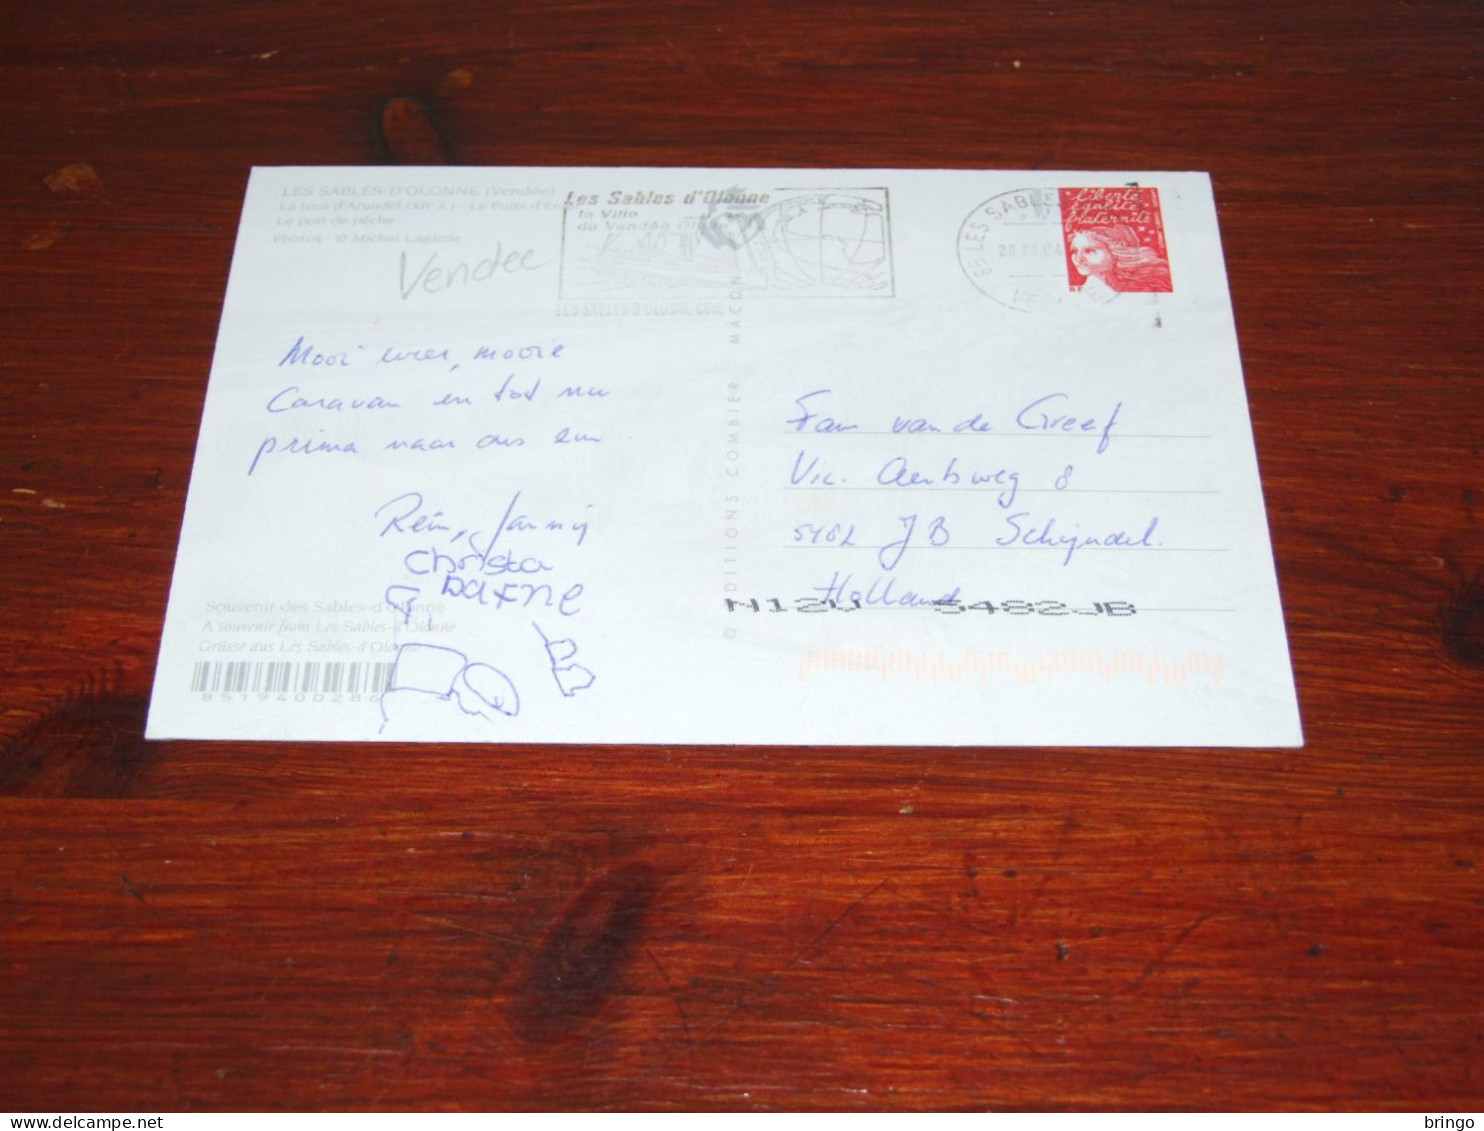 LES SABLES-D'OLONNE (Vendée)
La tour d'Arundel - Le Puits
Le port de pêche
Photos : © Michel Lagarde
Vendee
Les Sables d'Olonne
la Ville
du Vendée
LES SABLES D'OLONNE
85 LES SABLES
Liberté
égalité
fraternité
RF
Mooi weer, mooie
Caravan en tot nu
prima naar ons zin
Rein, Janny
Christa
DaFne
Souvenir des Sables-d'Olonne
A souvenir from Les Sables-d'Olonne
Grüsse aus Les Sables-d'Olonne
8519400286
© EDITIONS COMBIER - MÂCON
Fam van de Greef
Vic. Aertsweg 8
5482 JB Schijndel.
Holland
N120 5482JB
bringo